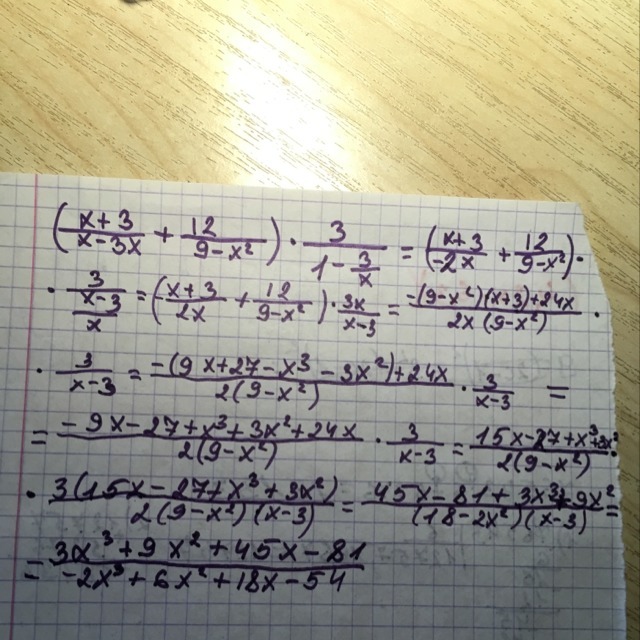 (x+3/x-3x + 12/9-x²) · 3/1-3/x = (x+3/-2x + 12/9-x²) ·
· 3/x-3/x = (-x+3/2x + 12/9-x²) · 3x/x-3 = -(9-x²)(x+3)+24x/2x(9-x²) ·
· 3/x-3 = -(9x+27-x³-3x²)+24x/2(9-x²) · 3/x-3 =
= -9x-27+x³+3x²+24x/2(9-x²) · 3/x-3 = 15x-27+x³+3x²/2(9-x²) ·
· 3(15x-27+x³+3x²)/2(9-x²)(x-3) = 45x-81+3x³+9x²/(18-2x²)(x-3) =
= 3x³+9x²+45x-81/-2x³+6x²+18x-54